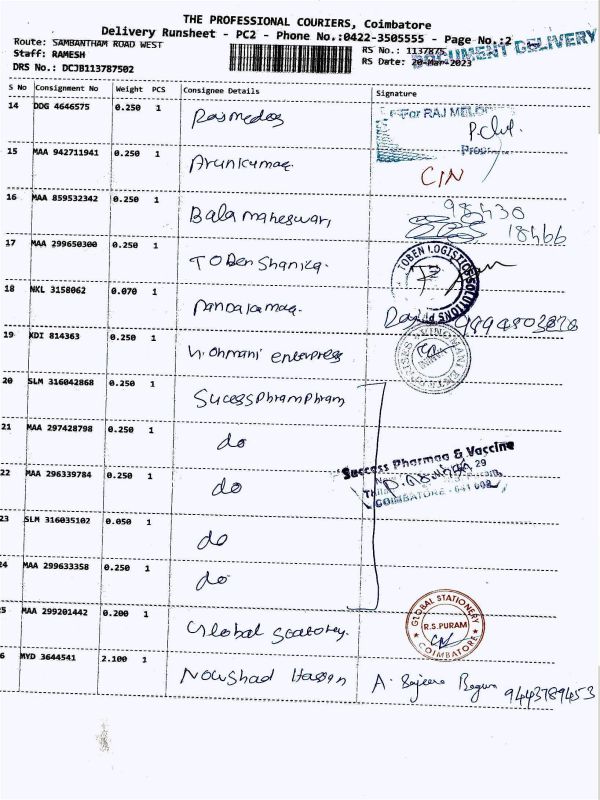 THE PROFESSIONAL COURIERS, Coimbatore
Delivery Runsheet - PC2 - Phone No.:0422-3505555 - Page No.:2
DOCUMENT DELIVERY
Route: SAMBANTHAM ROAD WEST
RS No.: 1137875
Staff: RAMESH
RS Date: 20-Mar-2023
DRS No.: DCJB113787502
S No Consignment No Weight PCS Consignee Details Signature
14 DDG 4646575 0.250 1 Rajmedos
For RAJ MELO
15 MAA 942711941 0.250 1 Arunkumar
C/N
16 MAA 859532342 0.250 1 Balamaheswari
98430
18466
17 MAA 299650300 0.250 1 TOBen Shanika
TOBEN LOGISTICS SOLUTIONS
18 NKL 3158062 0.070 1
9894803828
19 KDI 814363 0.250 1 enterpress
20 SLM 316042868 0.250 1 SucessPhramPhram
21 MAA 297428798 0.250 1 do
22 MAA 296339784 0.250 1 do
Success Pharmaa & Vaccine
29
COIMBATORE - 641 002
23 SLM 316035102 0.050 1 do
24 MAA 299633358 0.250 1 do
25 MAA 299201442 0.200 1 Global
GLOBAL STATIONERY
R.S.PURAM
COIMBATORE
6 MYD 3644541 2.100 1 Nowshad Hassan
A. Sajeera Begum 9443789453